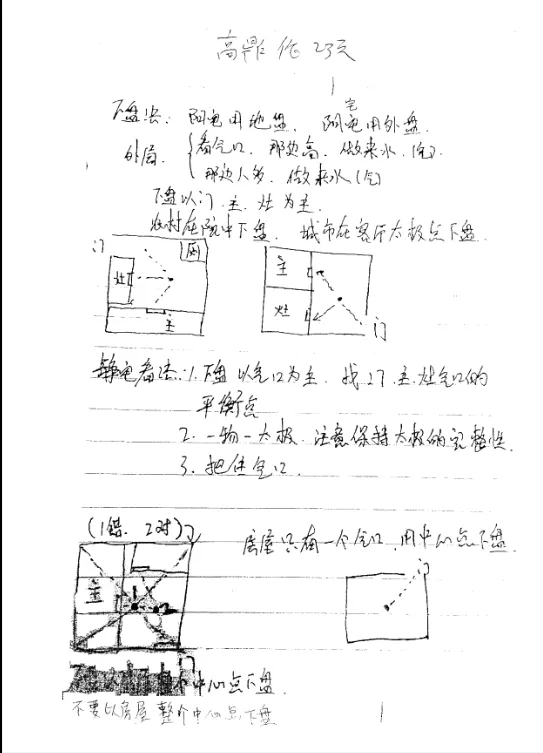 高鼎 作 23天
下盘法: 阴宅用地盘、阳宅用外盘.
外局. 看气口. 那边高. 做来水. (气).
那边人多, 做来水 (气)
下盘以门. 主. 灶为主.
农村在院中下盘. 城市在客厅太极点下盘.
门 厨 主
灶 灶
主 门
静宅看法: 1. 下盘以气口为主. 找门. 主. 灶气口的
平衡点
2. 一物一太极. 注意保持太极的完整性.
3. 把住气口.
(1错. 2对) 门
房屋只有一个气口, 用中心点下盘.
主 1 2 门
门
中心点下盘.
不要以房屋整个中心点下盘